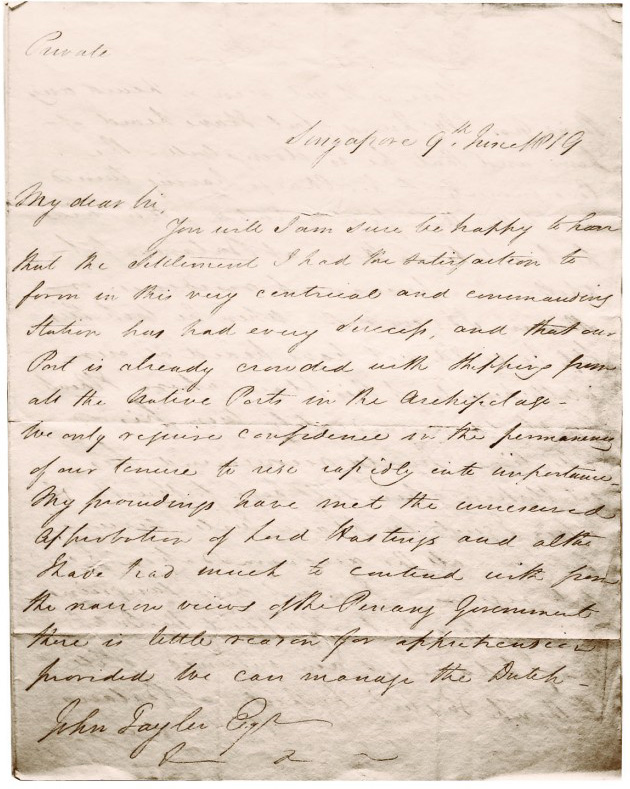 Private
Singapore 9th June 1819
My dear Sir,
You will I am sure be happy to hear
that the Settlement I had the satisfaction to
form in this very centrical and commanding
Station has had every success, and that our
Port is already crowded with shipping from
all the Native Ports in the Archipelago -
We only require confidence in the permanency
of our tenure to rise rapidly into importance -
My proceedings have met the unreserved
approbation of Lord Hastings and altho
I have had much to contend with from
the narrow views of the Penang Government
there is little reason for apprehension
provided we can manage the Dutch -
John Tayler Esqr